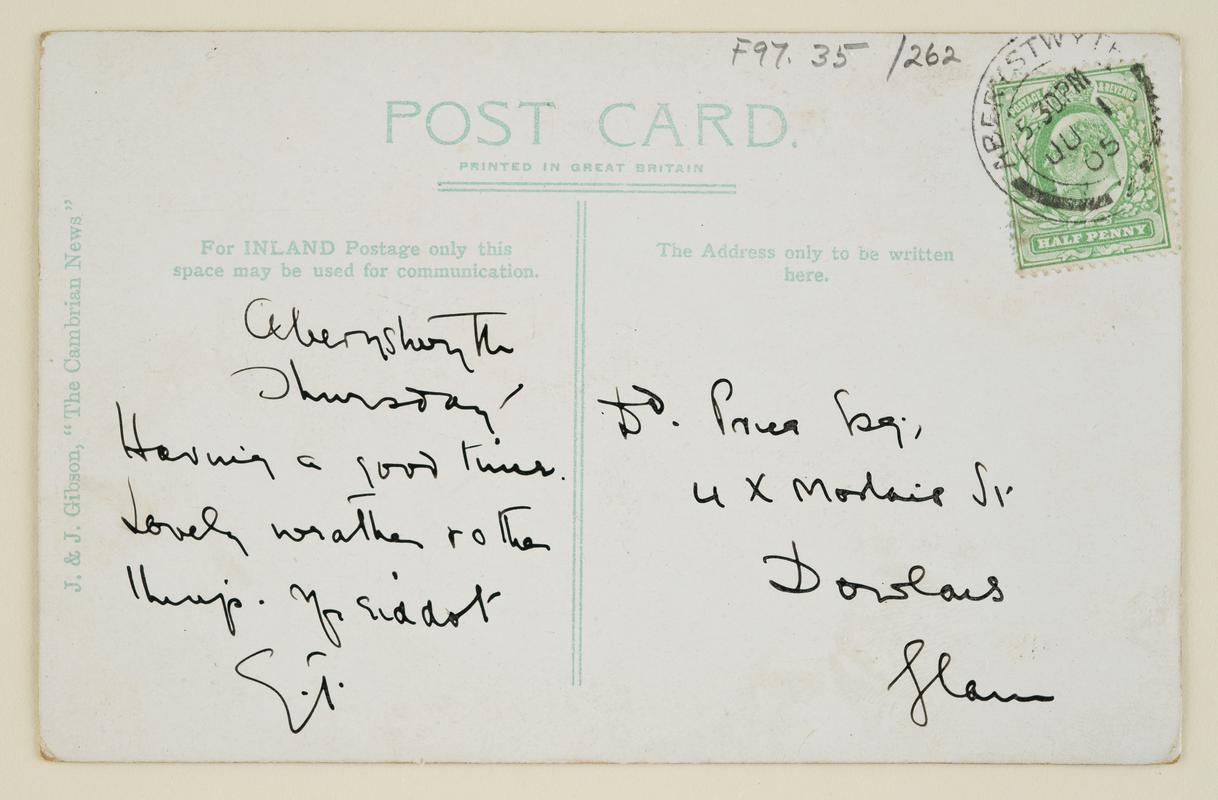 F97. 35 /262
POST CARD.
PRINTED IN GREAT BRITAIN
ABERYSTWYTH
5.30PM
JU 1
05
POSTAGE & REVENUE
HALF PENNY
J. & J. Gibson, "The Cambrian News"
For INLAND Postage only this
space may be used for communication.
Aberystwyth
Thursday
Having a good time.
Lovely weather & other
things. Yr eiddot
The Address only to be written
here.
Dd. Price Esq,
4 X Morlais St
Dowlais
Glam